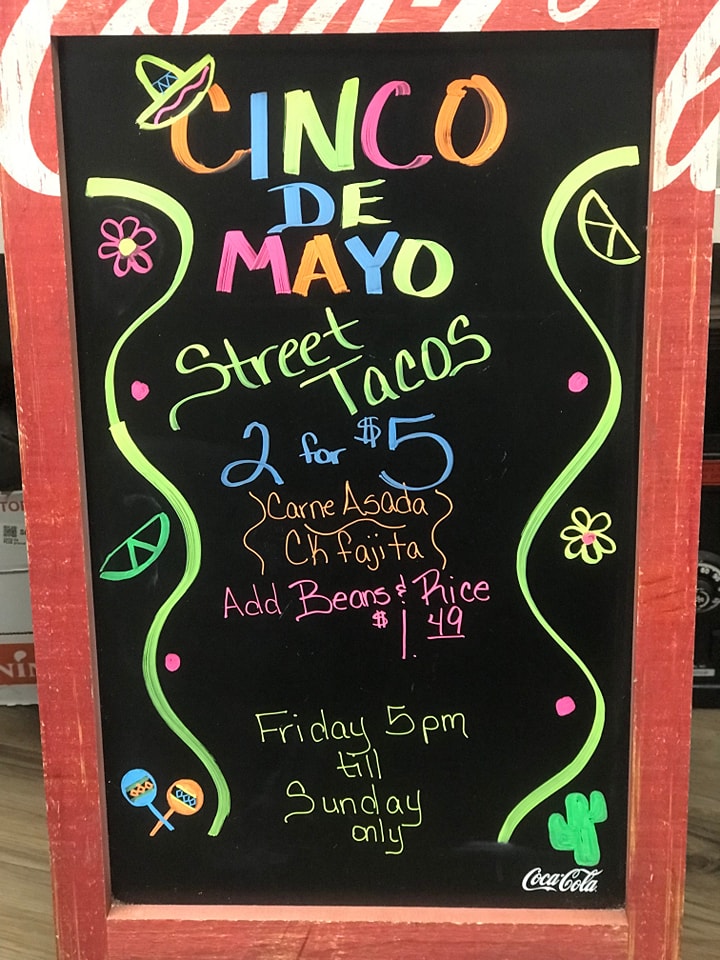 CINCO
DE
MAYO
Street
Tacos
2 for $5
Carne Asada
Ch fajita
Add Beans & Rice
$1.49
Friday 5pm
till
Sunday
only
Coca-Cola